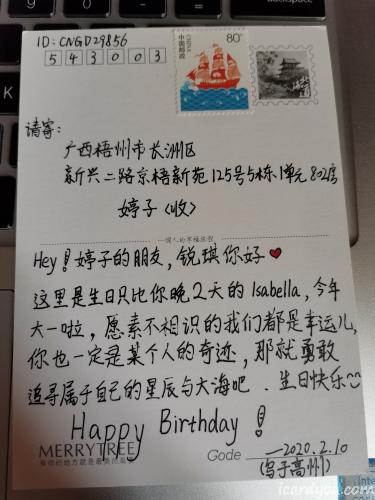 ID: CNGD29856
543003
中国邮政
80分
请寄:
广西梧州市长洲区
新兴二路京梧新苑125号5栋1单元802房
婷子(收)
一個人的幸福旅程
Hey! 婷子的朋友,锐琪你好❤
这里是生日只比你晚2天的Isabella,今年
大一啦,愿素不相识的我们都是幸运儿,
你也一定是某个人的奇迹,那就勇敢
追寻属于自己的星辰与大海吧.生日快乐~
Happy Birthday!
MERRYTREE
有你的地方就是最美的風景
Gode
—2020.2.10
(写于高州)
icardyou.com